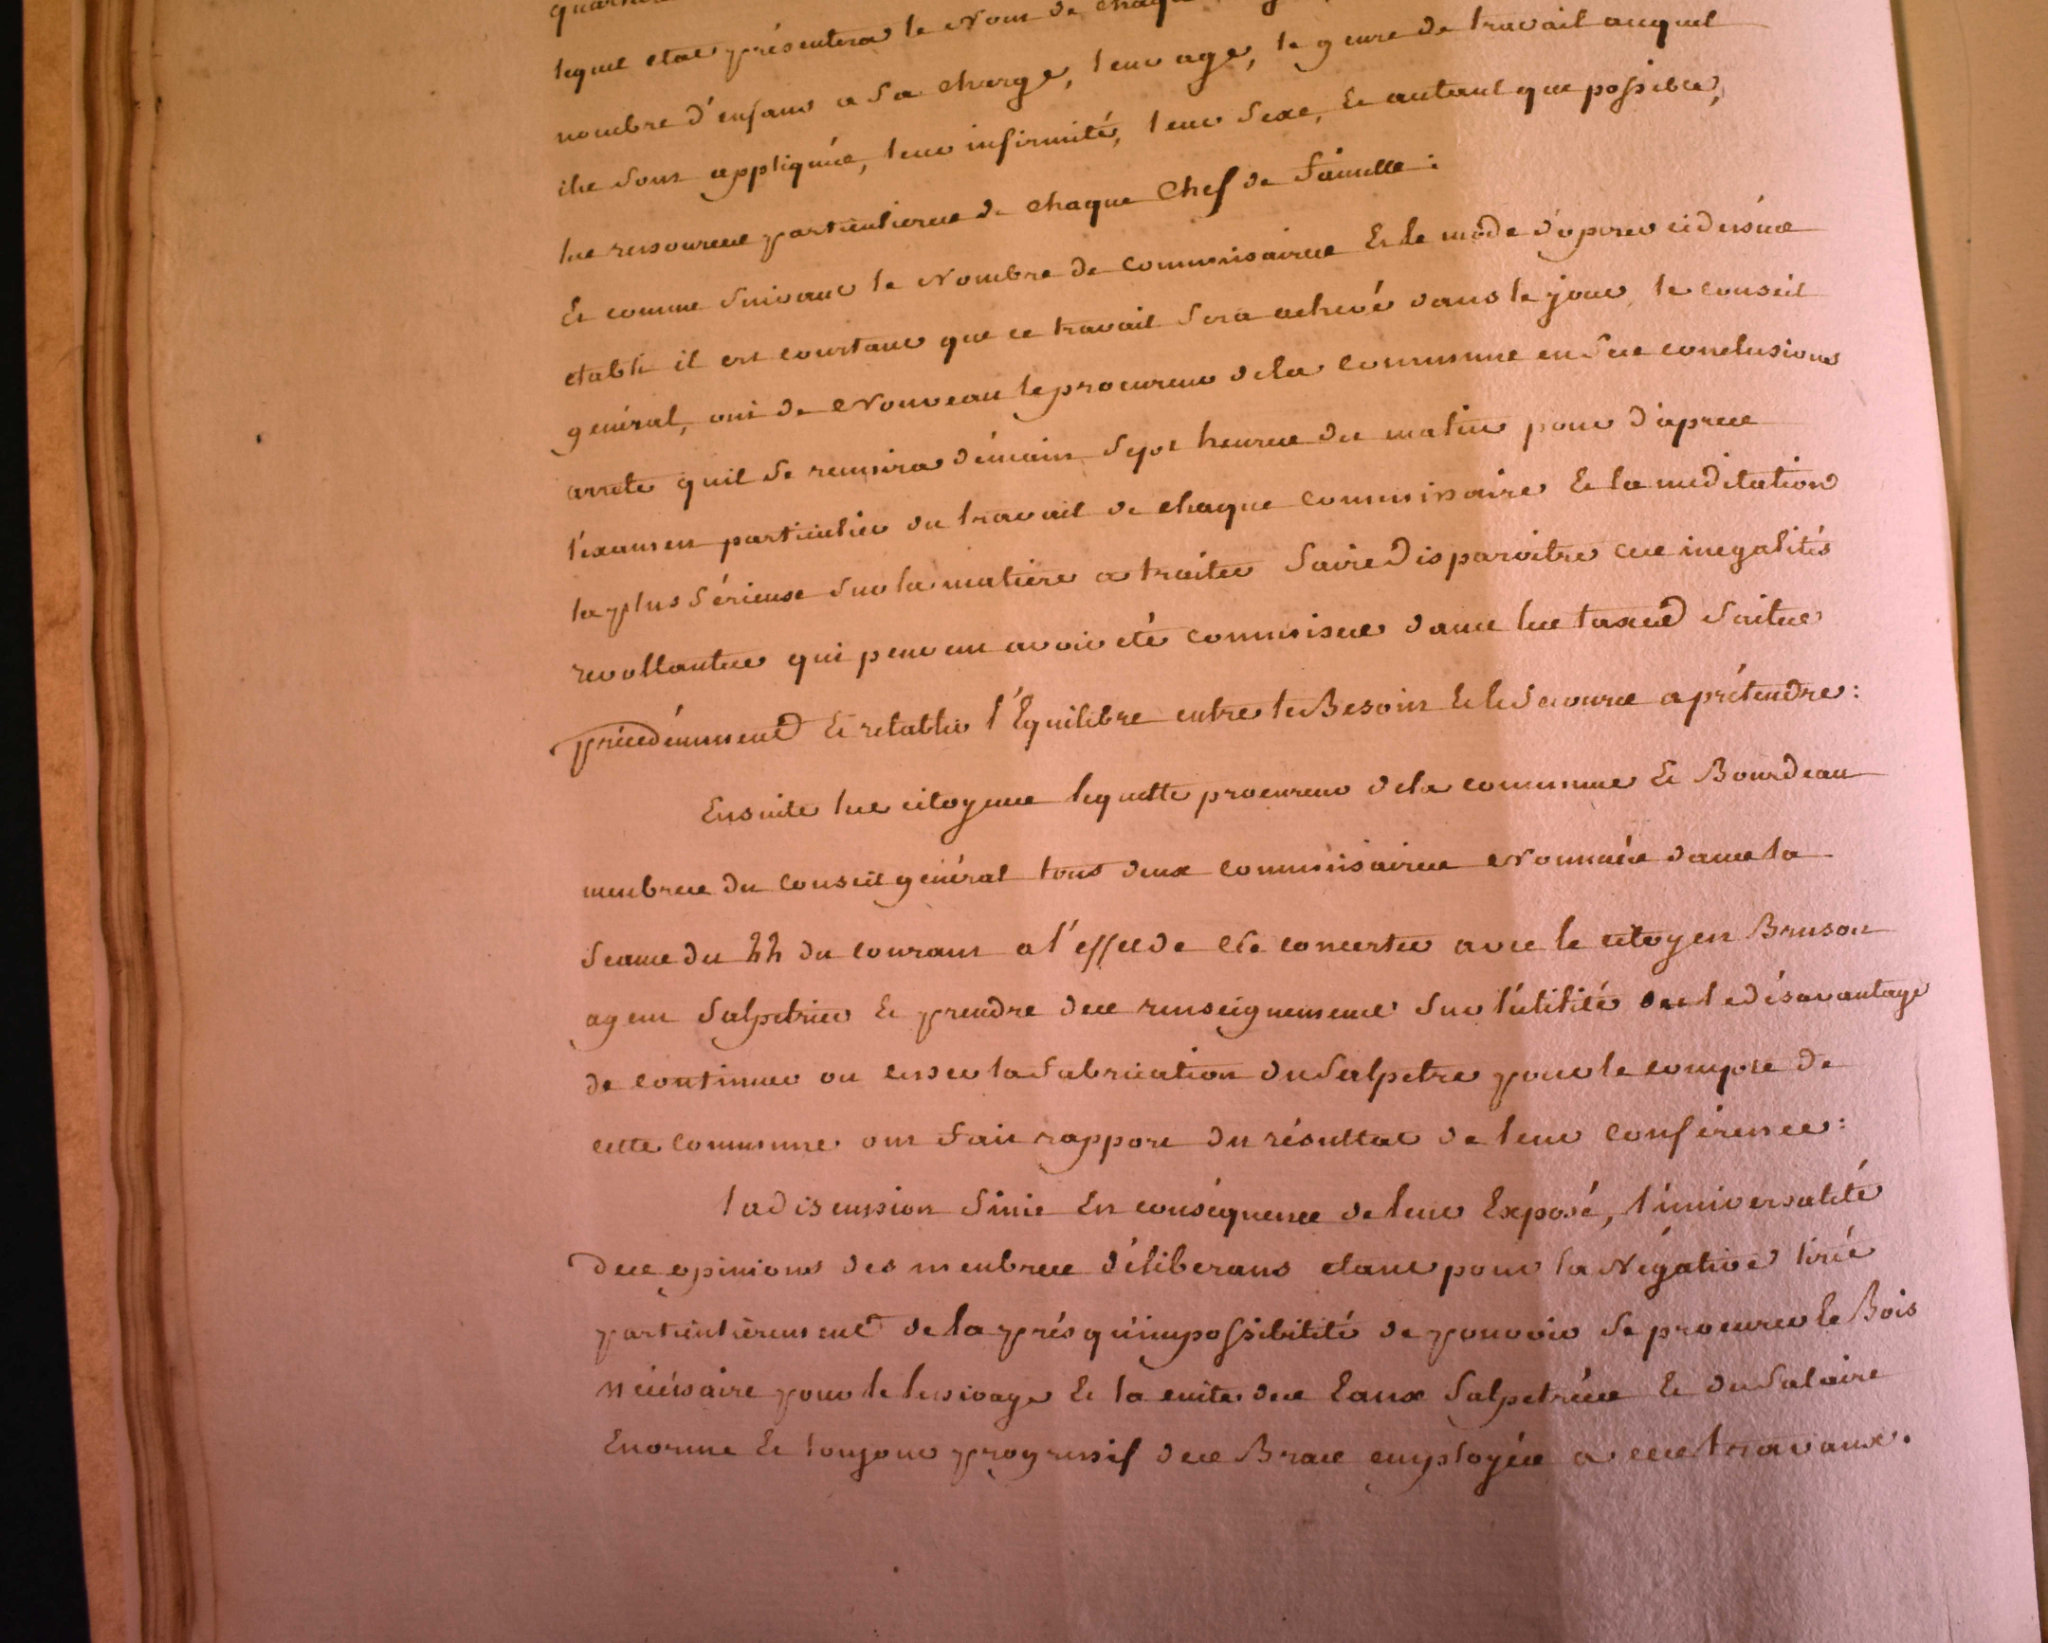 lequel etat présentera le Nom de chaque
nombre d'enfans a sa charge, leur age, le genre de travail auquel
ils sont appliqués, leur infirmité, leur sexe, et autant que possible,
les ressources particulieres de chaque Chef de famille :
Et comme suivant le Nombre de commissaires Et le mode d'operer cidessus
etabli il est constant que ce travail sera achevé dans le jour, le conseil
général, oui de Nouveau le procureur dela commune en ses conclusions
arrete quil se reunira démain sept heures du matin pour d'après
l'examen particulier du travail de chaque commissaire Et la meditation
la plus sérieuse sur la matière a traiter faire disparoitre ces inegalités
revoltantes qui peuvent avoir été commises dans les taxes faites
précédemment Et retablir l'Equilibre entre le Besoin Et le secours a prétendre :
Ensuite les citoyens lequette procureur dela commune Et Bourdeau
membres du conseil général tous deux commissaires Nommés dans la
seance du 22 du courant a l'effet de se concerter avec le citoyen Bruson
agent salpetrier Et prendre des renseignements sur l'utilité ou le désavantage
de continuer ou cesser la fabrication du salpetre pour le compte de
cette commune ont fait rapport du résultat de leur conférence :
la discussion finie En conséquence de leur Exposé, l'universalité
des opinions des membres déliberans etant pour la Négative tirée
particulièrement de la présqu'impossibilité de pouvoir se procurer le Bois
nécéssaire pour le lessivage Et la cuite des Eaux salpetrées Et du salaire
Enorme Et toujour progressif des Bras employés a ces travaux.